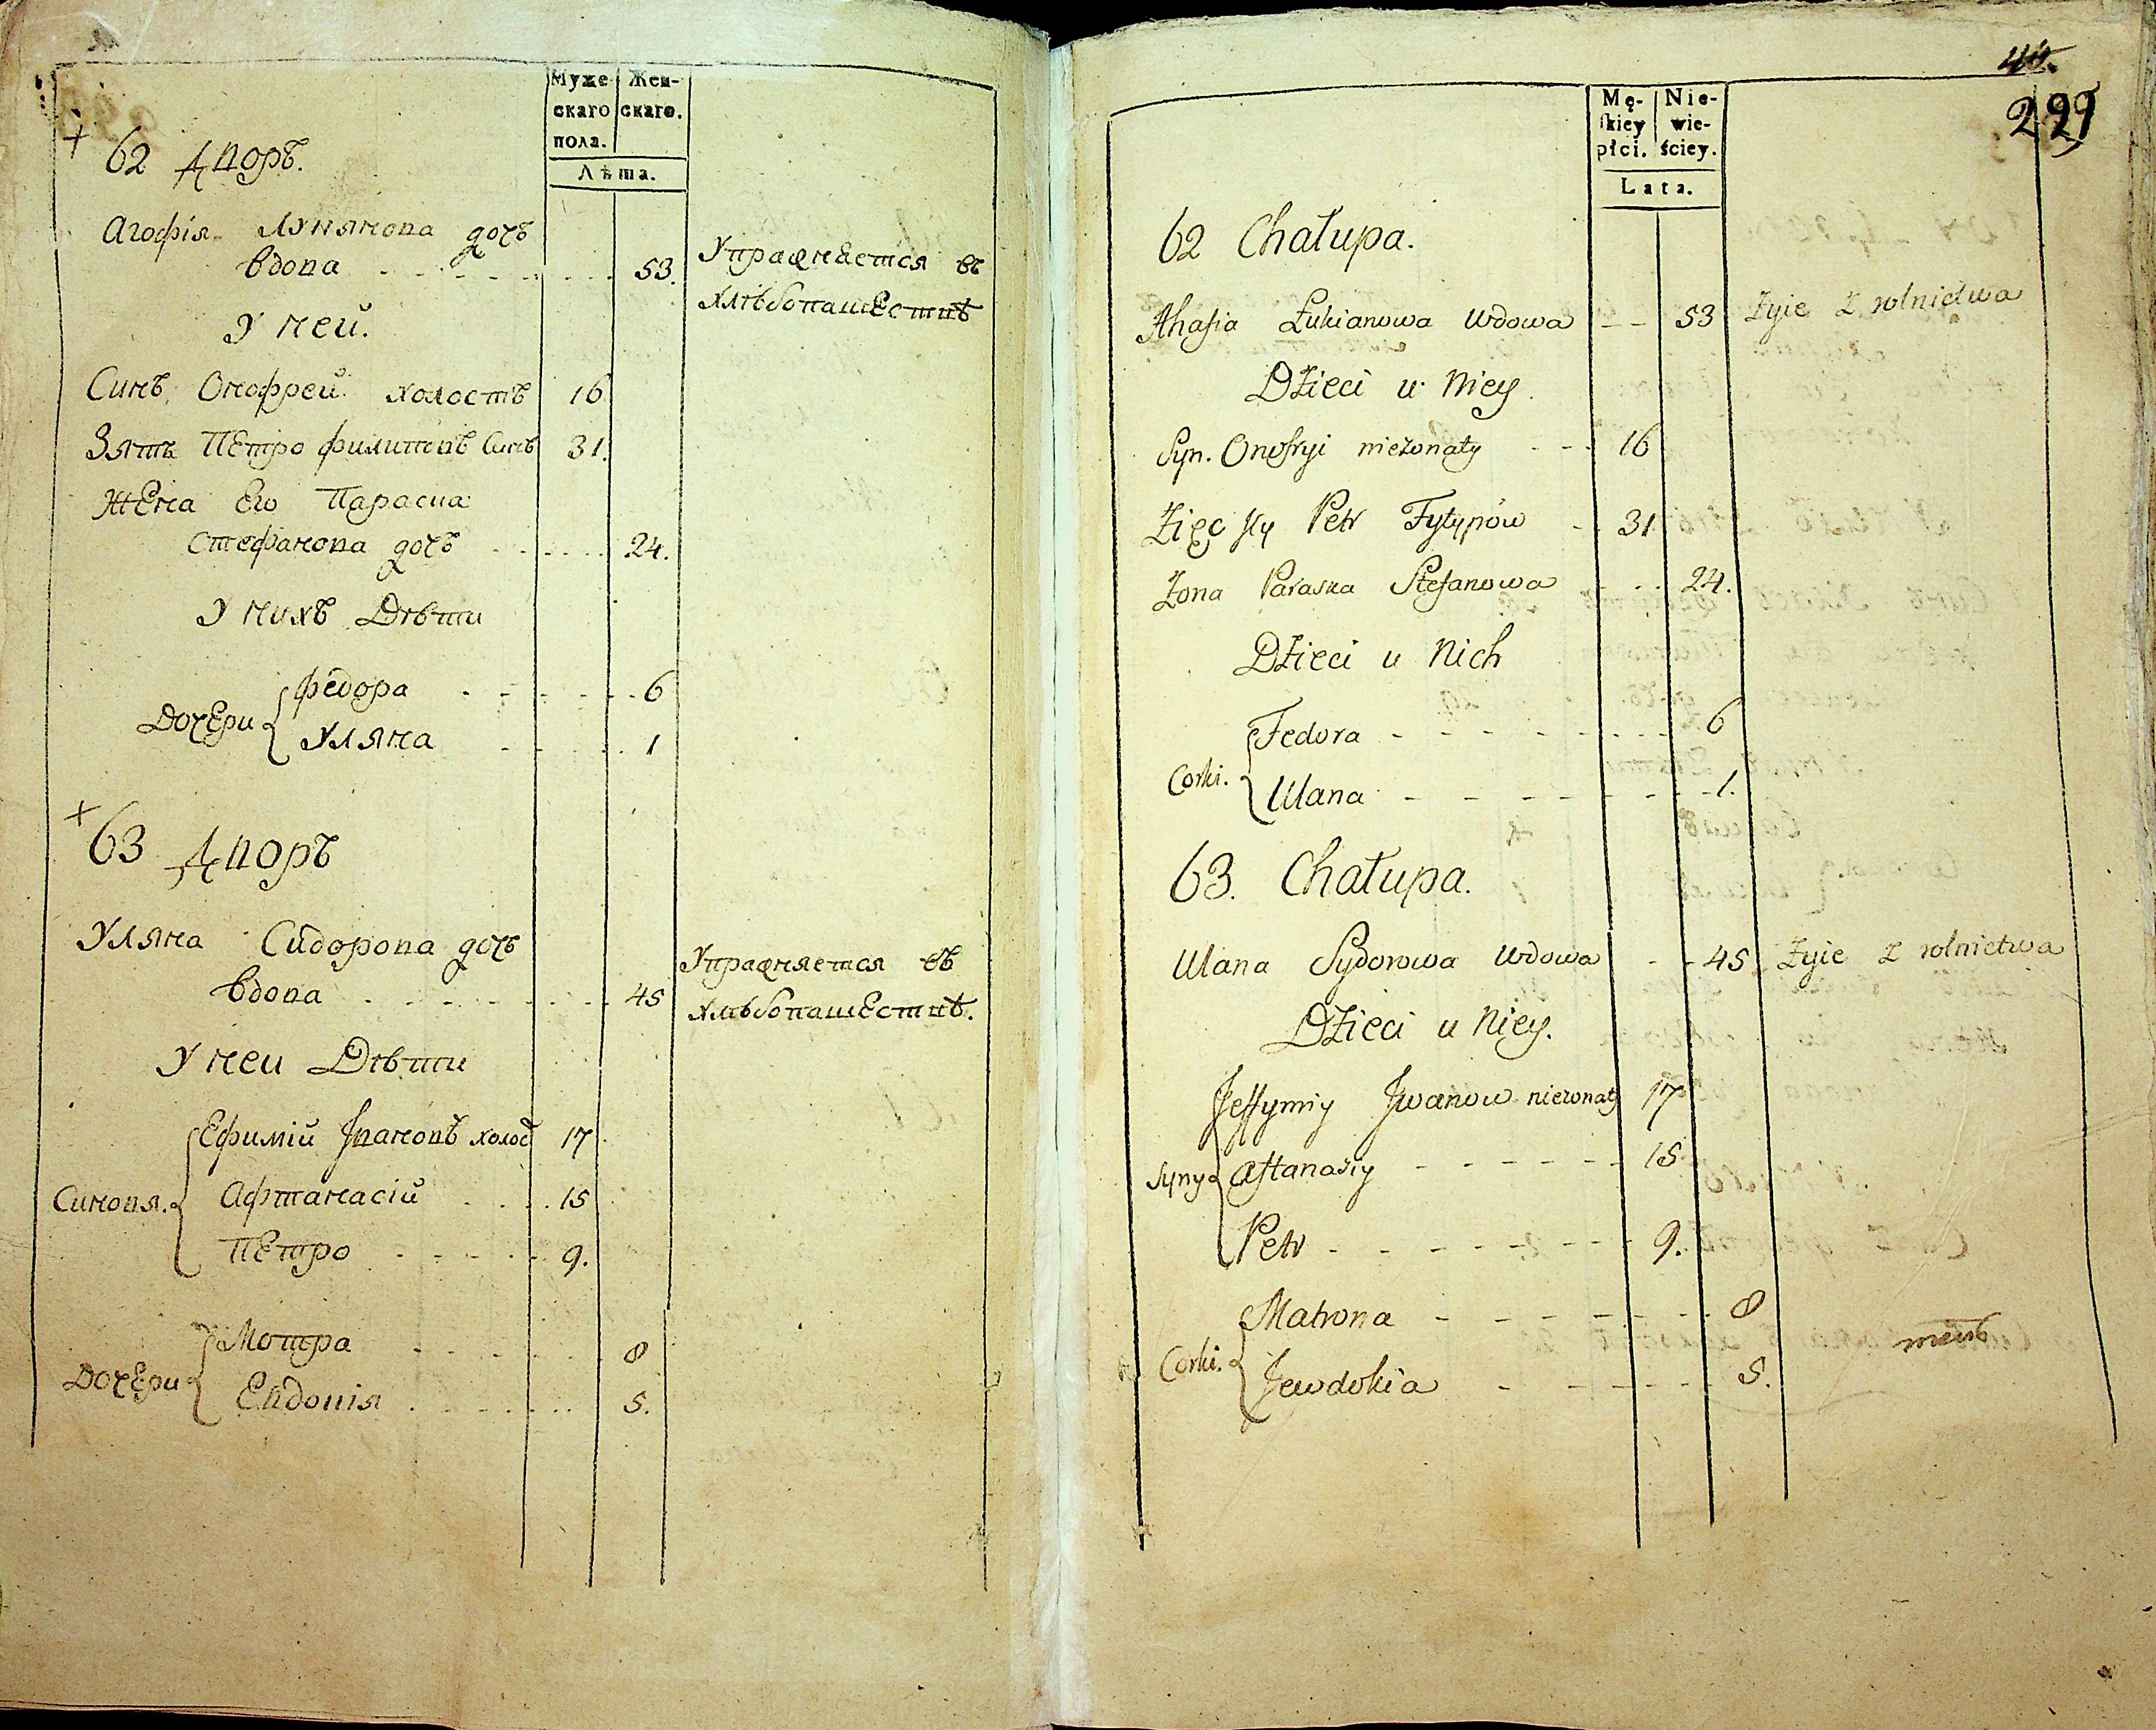 Муже- Жен-
скаго скаго.
пола.
Лѣта.
+ 62 Дворъ.
Агофія Лукянова дочь
вдова 53. Упражняется въ
хлѣбопашествѣ
У ней.
Синъ Онофрей холостъ 16
Зять Петро Филиповъ Синъ 31.
Жена Его Параска
Стефанова дочь 24.
У нихъ Дѣти
Дочери Федора 6
Уляна 1
+ 63 Дворъ
Уляна Сидорова дочь
вдова 45 Упражняется въ
хлѣбопашествѣ.
У неи Дѣти
Ефимій Ивановъ холос 17
Синовя. Афтанасій 15
Петро 9.
Мотра 8
Дочери Евдокія 5.
44.
299
Mę- Nie-
skiey wie-
płci. ściey.
Lata.
62 Chałupa.
Ahafia Łukianowa Wdowa 53 Żyie z rolnictwa
Dzieci u Niey.
Syn. Onofryi nieżonaty 16
Zięć Jey Petr Fyłypów 31
Żona Paraska Stefanowa 24.
Dzieci u Nich
Fedora 6
Corki. Ulana 1.
63. Chałupa.
Ulana Sydorowa Wdowa 45 Żyie z rolnictwa
Dzieci u Niey.
Jeffymiy Jwanow nieżonaty 17
Syny Aftanasiy 15
Petr 9.
Matrona 8
Corki. Jewdokia 5.